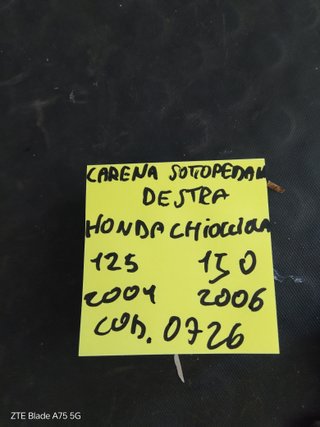 CARENA SOTTOPEDAN
DESTRA
HONDA CHIOCCIOLA
125 150
2004 2006
COD. 0726
ZTE Blade A75 5G